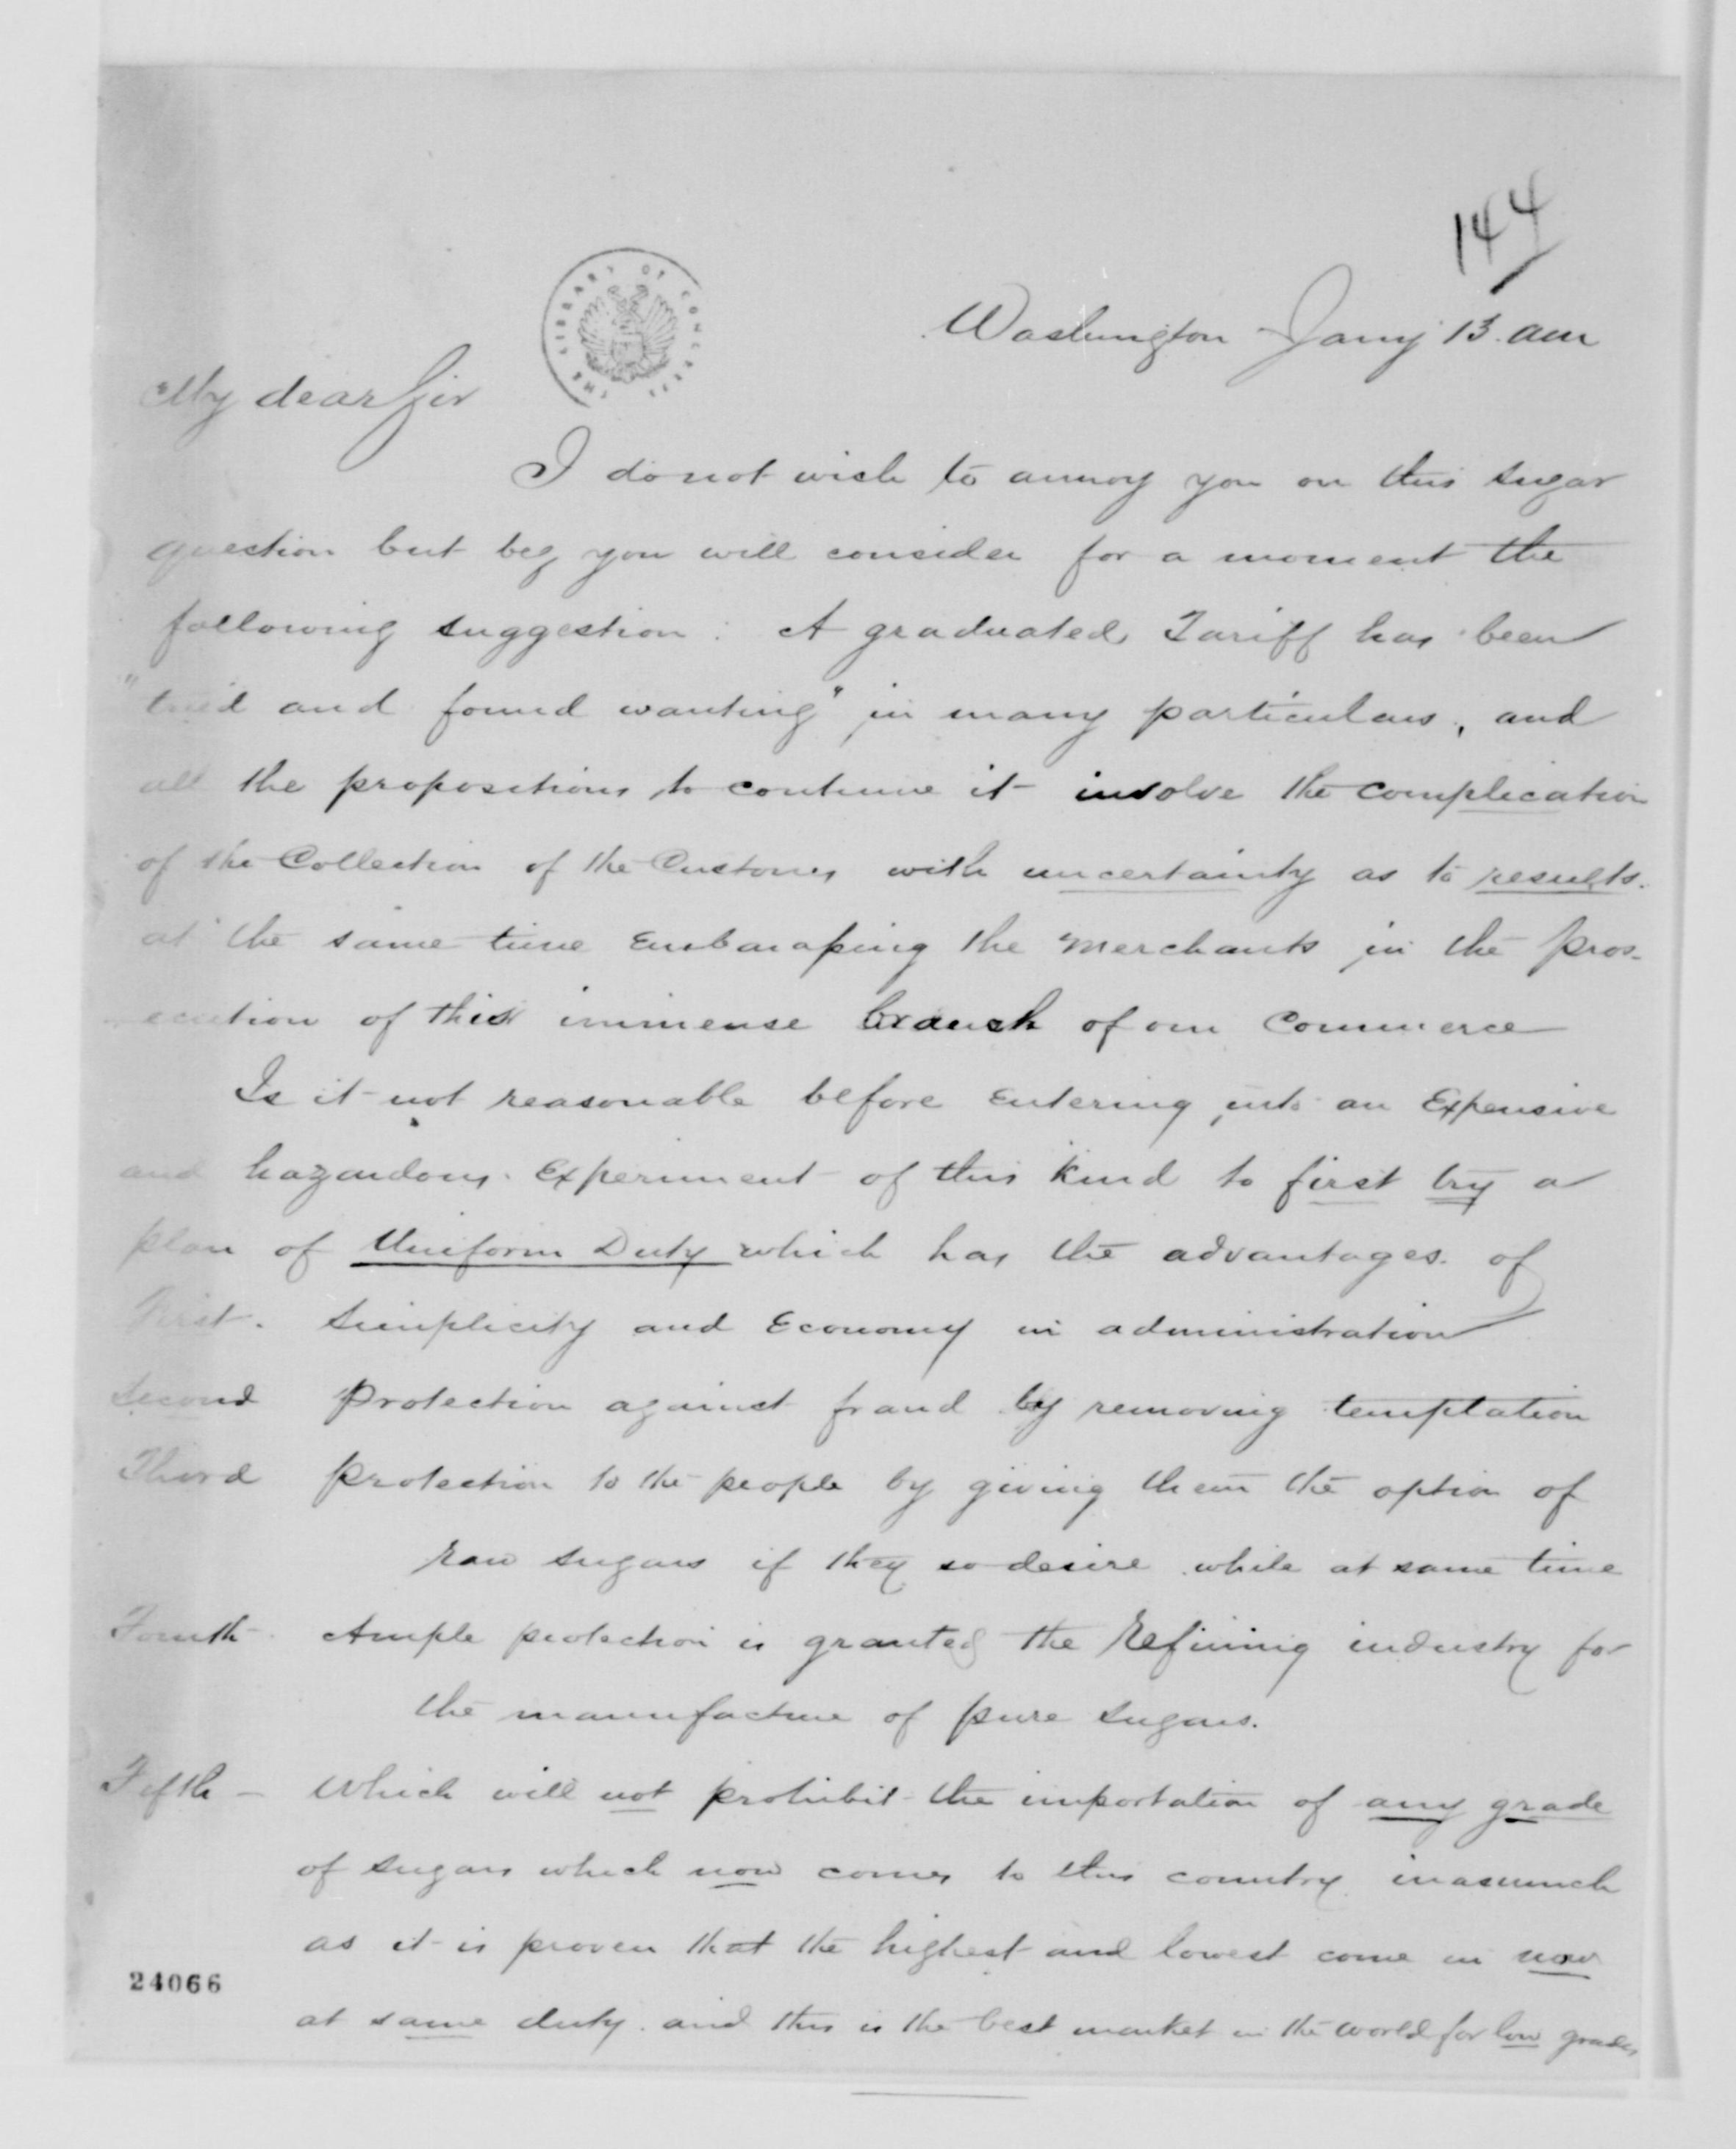 144
THE LIBRARY OF CONGRESS
Washington Jany 13. am
My dear Sir
I do not wish to annoy you on this sugar
question but beg you will consider for a moment the
following suggestion: A graduated Tariff has been
"tried and found wanting" in many particulars, and
all the propositions to continue it involve the complication
of the Collection of the Customs with uncertainty as to results.
at the same time Embarassing the Merchants in the pros-
ecution of this immense branch of our Commerce
Is it not reasonable before Entering into an Expensive
and hazardous Experiment of this kind to first try a
plan of Uniform Duty which has the advantages of
First. Simplicity and Economy in administration
Second Protection against fraud by removing temptation
Third protection to the people by giving them the option of
raw sugars if they so desire while at same time
Fourth - Ample protection is granted the Refining industry for
the manufacture of pure sugars.
Fifth - Which will not prohibit the importation of any grade
of sugars which now comes to this country inasmuch
as it is proven that the highest and lowest come in now
at same duty. and this is the best market in the world for low grades
24066